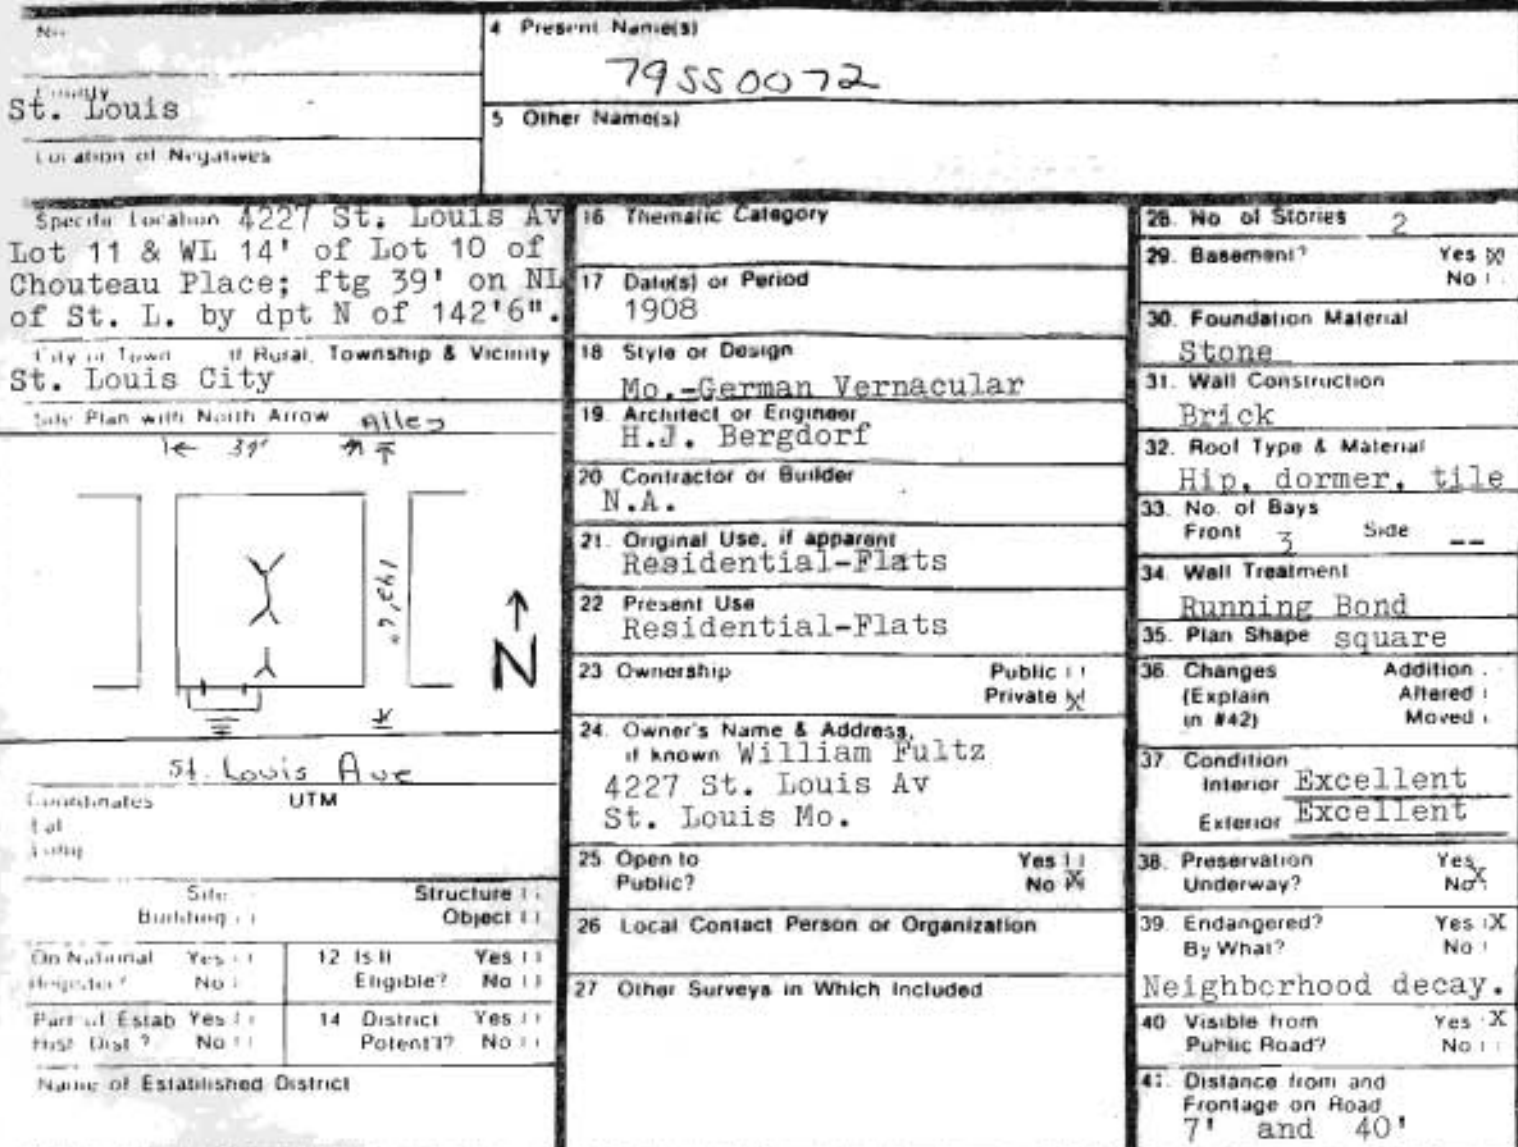 No.
4 Present Name(s)
79SS0072
County
St. Louis
5 Other Name(s)
Location of Negatives
Specific Location 4227 St. Louis Av
Lot 11 & WL 14' of Lot 10 of
Chouteau Place; ftg 39' on NL
of St. L. by dpt N of 142'6".
City or Town If Rural, Township & Vicinity
St. Louis City
Site Plan with North Arrow Alley
39'
142'6"
N
St. Louis Ave
Coordinates UTM
Lat
Long
Site Structure
Building Object
On National Register? Yes No
12 Is It Eligible? Yes No
Part of Estab Hist Dist? Yes No
14 District Potent'l? Yes No
Name of Established District
16 Thematic Category
17 Date(s) or Period
1908
18 Style or Design
Mo.-German Vernacular
19. Architect or Engineer
H.J. Bergdorf
20 Contractor or Builder
N.A.
21. Original Use, if apparent
Residential-Flats
22 Present Use
Residential-Flats
23 Ownership Public
Private X
24. Owner's Name & Address,
if known William Fultz
4227 St. Louis Av
St. Louis Mo.
25 Open to Yes
Public? No X
26 Local Contact Person or Organization
27 Other Surveys in Which Included
28. No of Stories 2
29. Basement? Yes X
No
30. Foundation Material
Stone
31. Wall Construction
Brick
32. Roof Type & Material
Hip, dormer, tile
33. No. of Bays
Front 3 Side --
34 Wall Treatment
Running Bond
35. Plan Shape square
36. Changes Addition
(Explain Altered
in #42) Moved
37. Condition
Interior Excellent
Exterior Excellent
38. Preservation Yes
Underway? No X
39. Endangered? Yes X
By What? No
Neighborhood decay.
40 Visible from Yes X
Public Road? No
41. Distance from and
Frontage on Road
7' and 40'